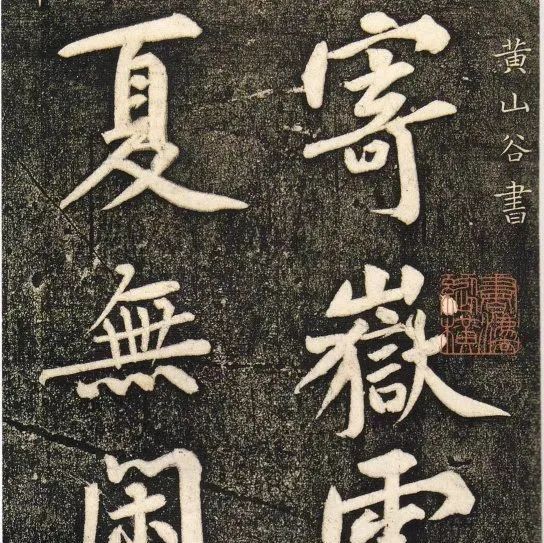 黄山谷書
寄嶽雲
夏無